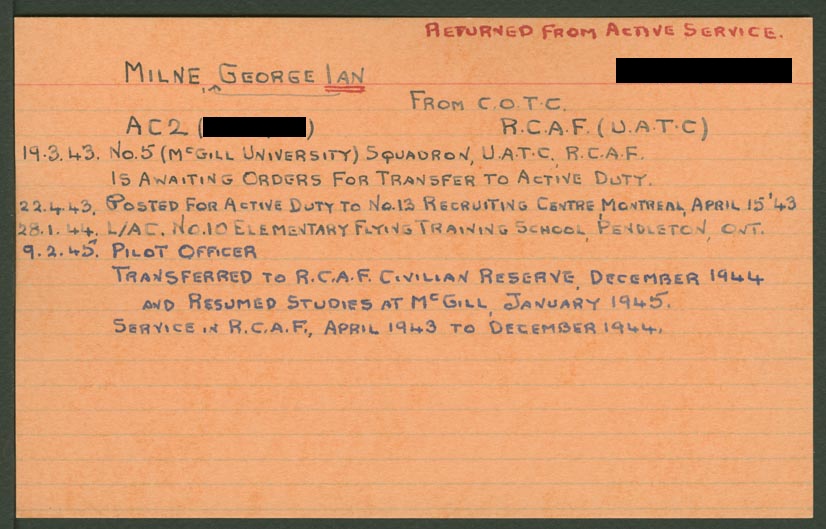 RETURNED FROM ACTIVE SERVICE.
MILNE, GEORGE IAN
FROM C.O.T.C.
AC2 ( ) R.C.A.F. (U.A.T.C)
19.3.43. NO.5 (McGILL UNIVERSITY) SQUADRON, U.A.T.C, R.C.A.F.
IS AWAITING ORDERS FOR TRANSFER TO ACTIVE DUTY.
22.4.43. POSTED FOR ACTIVE DUTY TO NO.13 RECRUITING CENTRE, MONTREAL, APRIL 15 '43
28.1.44. L/AC. NO.10 ELEMENTARY FLYING TRAINING SCHOOL, PENDLETON, ONT.
9.2.45. PILOT OFFICER
TRANSFERRED TO R.C.A.F. CIVILIAN RESERVE, DECEMBER 1944
AND RESUMED STUDIES AT McGILL, JANUARY 1945.
SERVICE IN R.C.A.F., APRIL 1943 TO DECEMBER 1944.